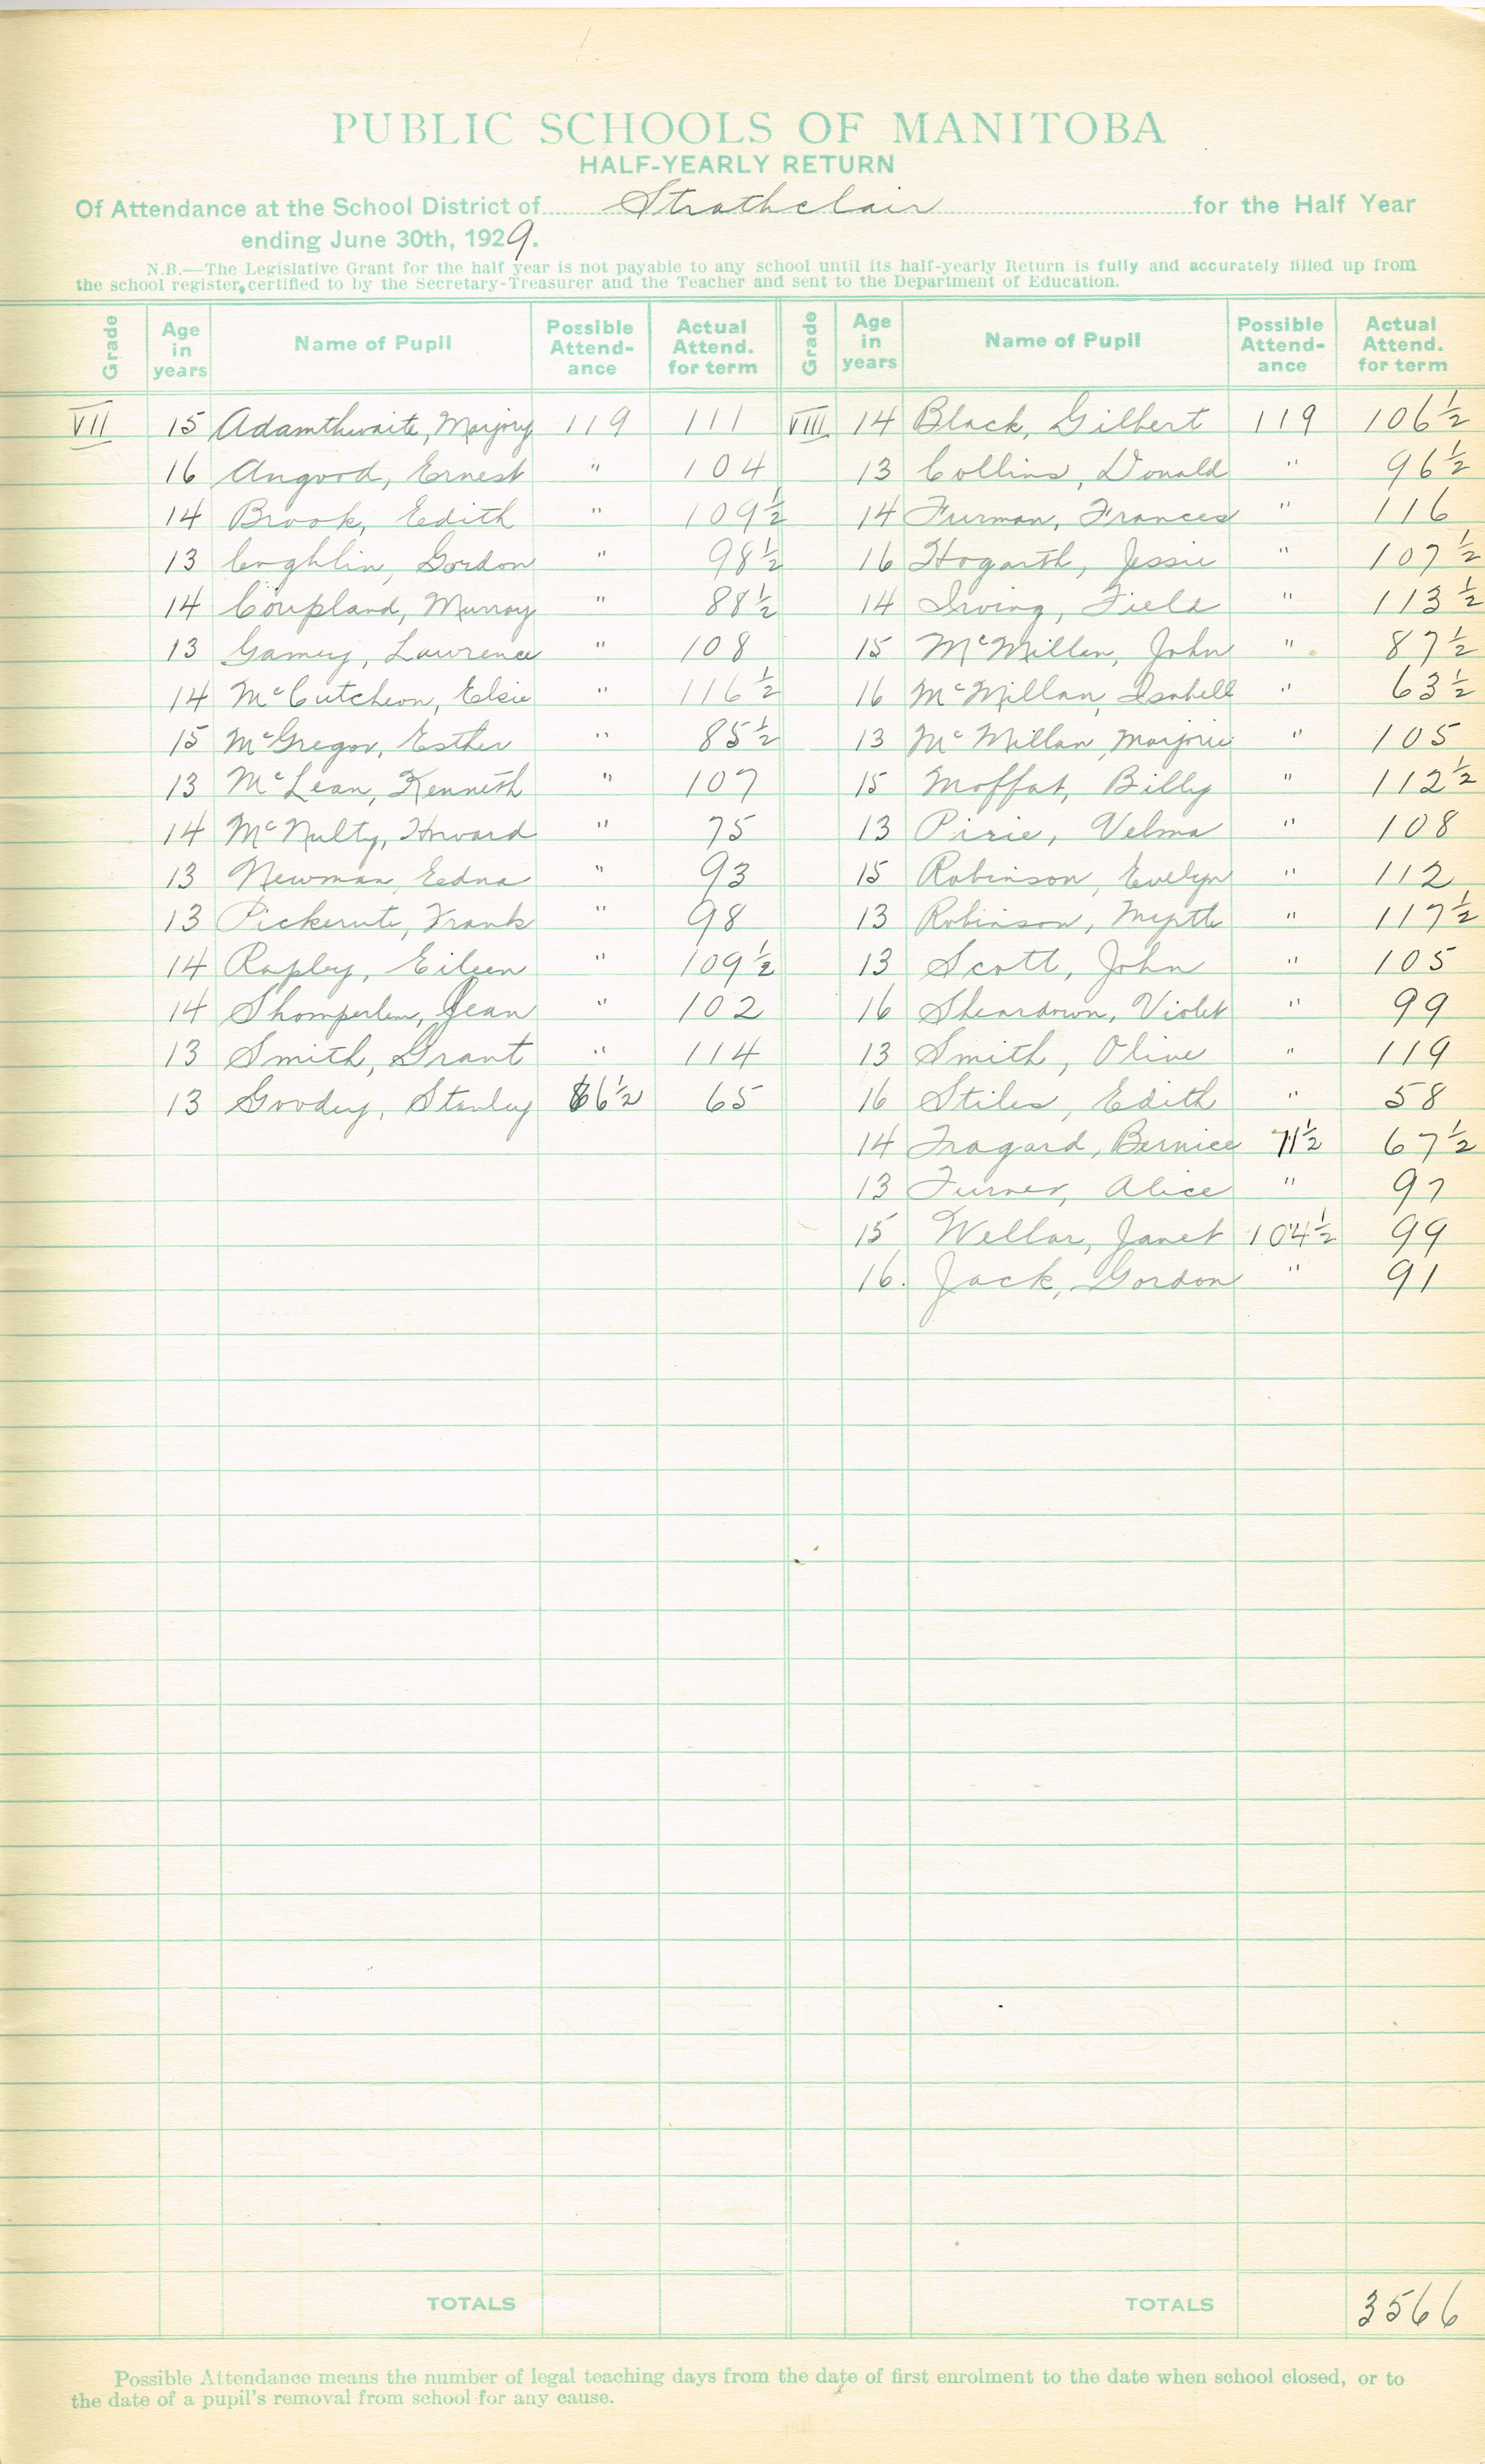 PUBLIC SCHOOLS OF MANITOBA
HALF-YEARLY RETURN
Of Attendance at the School District of Strathclair for the Half Year
ending June 30th, 1929.
N.B.—The Legislative Grant for the half year is not payable to any school until its half-yearly Return is fully and accurately filled up from
the school register, certified to by the Secretary-Treasurer and the Teacher and sent to the Department of Education.
Grade Age in years Name of Pupil Possible Attend-ance Actual Attend. for term Grade Age in years Name of Pupil Possible Attend-ance Actual Attend. for term
VII 15 Adamthwaite, Marjory 119 111 VIII 14 Black, Gilbert 119 106½
16 Angood, Ernest " 104 13 Collins, Donald " 96½
14 Brook, Edith " 109½ 14 Furman, Frances " 116
13 Coghlin, Gordon " 98½ 16 Hogarth, Jessie " 107½
14 Coupland, Murray " 88½ 14 Irving, Field " 113½
13 Gamey, Lawrence " 108 15 McMillan, John " 87½
14 McCutcheon, Elsie " 116½ 16 McMillan, Isabell " 63½
15 McGregor, Esther " 85½ 13 McMillan, Marjorie " 105
13 McLean, Kenneth " 107 15 Moffat, Billy " 112½
14 McNulty, Howard " 75 13 Pirie, Velma " 108
13 Newman, Edna " 93 15 Robinson, Evelyn " 112
13 Frank " 98 13 Robinson, Myrtle " 117½
14 Rapley, Eileen " 109½ 13 Scott, John " 105
14 Shomperlen, Jean " 102 16 Sheardown, Violet " 99
13 Smith, Grant " 114 13 Smith, Olive " 119
13 Goodey, Stanley 66½ 65 16 Stiles, Edith " 58
14 Tragard, Bernice 71½ 67½
13 Turner, Alice " 97
15 Wellar, Janet 104½ 99
16. Jack, Gordon " 91
TOTALS TOTALS 3566
Possible Attendance means the number of legal teaching days from the date of first enrolment to the date when school closed, or to
the date of a pupil's removal from school for any cause.